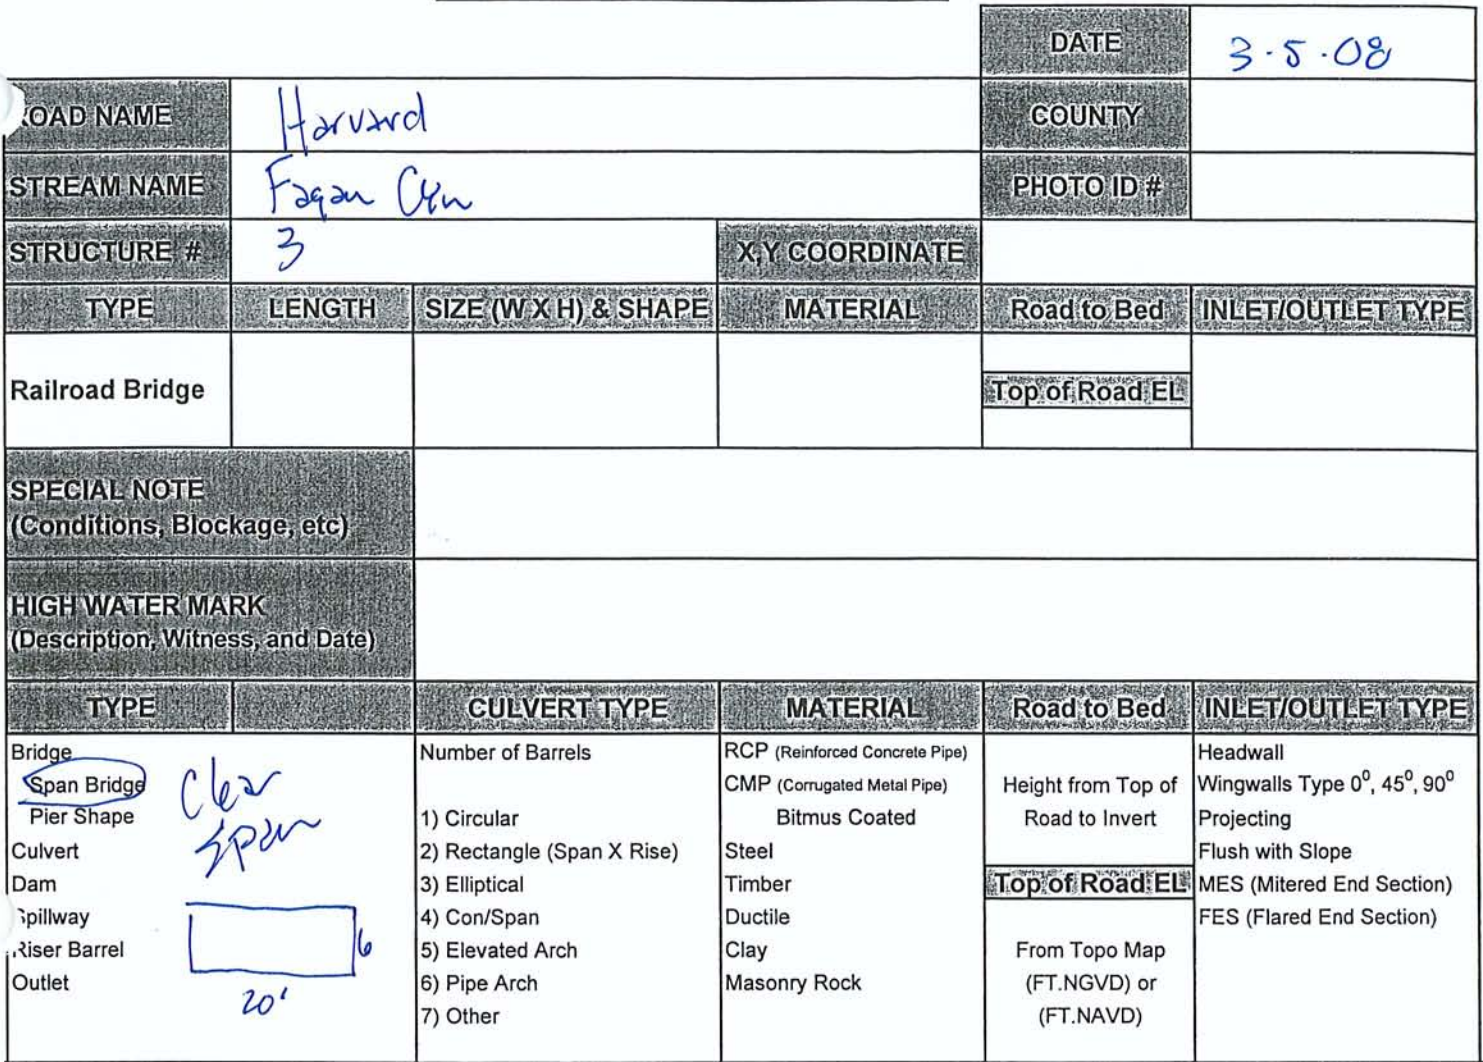 DATE 3·5·08
OAD NAME Harvard COUNTY
STREAM NAME Fagan Cyn PHOTO ID #
STRUCTURE # 3 X,Y COORDINATE
TYPE LENGTH SIZE (W X H) & SHAPE MATERIAL Road to Bed INLET/OUTLET TYPE
Railroad Bridge Top of Road EL
SPECIAL NOTE
(Conditions, Blockage, etc)
HIGH WATER MARK
(Description, Witness, and Date)
TYPE CULVERT TYPE MATERIAL Road to Bed INLET/OUTLET TYPE
Bridge
Span Bridge
Pier Shape
Culvert
Dam
Spillway
Riser Barrel
Outlet
Clear
Span
6
20'
Number of Barrels
1) Circular
2) Rectangle (Span X Rise)
3) Elliptical
4) Con/Span
5) Elevated Arch
6) Pipe Arch
7) Other
RCP (Reinforced Concrete Pipe)
CMP (Corrugated Metal Pipe)
Bitmus Coated
Steel
Timber
Ductile
Clay
Masonry Rock
Height from Top of
Road to Invert
Top of Road EL
From Topo Map
(FT.NGVD) or
(FT.NAVD)
Headwall
Wingwalls Type 0⁰, 45⁰, 90⁰
Projecting
Flush with Slope
MES (Mitered End Section)
FES (Flared End Section)